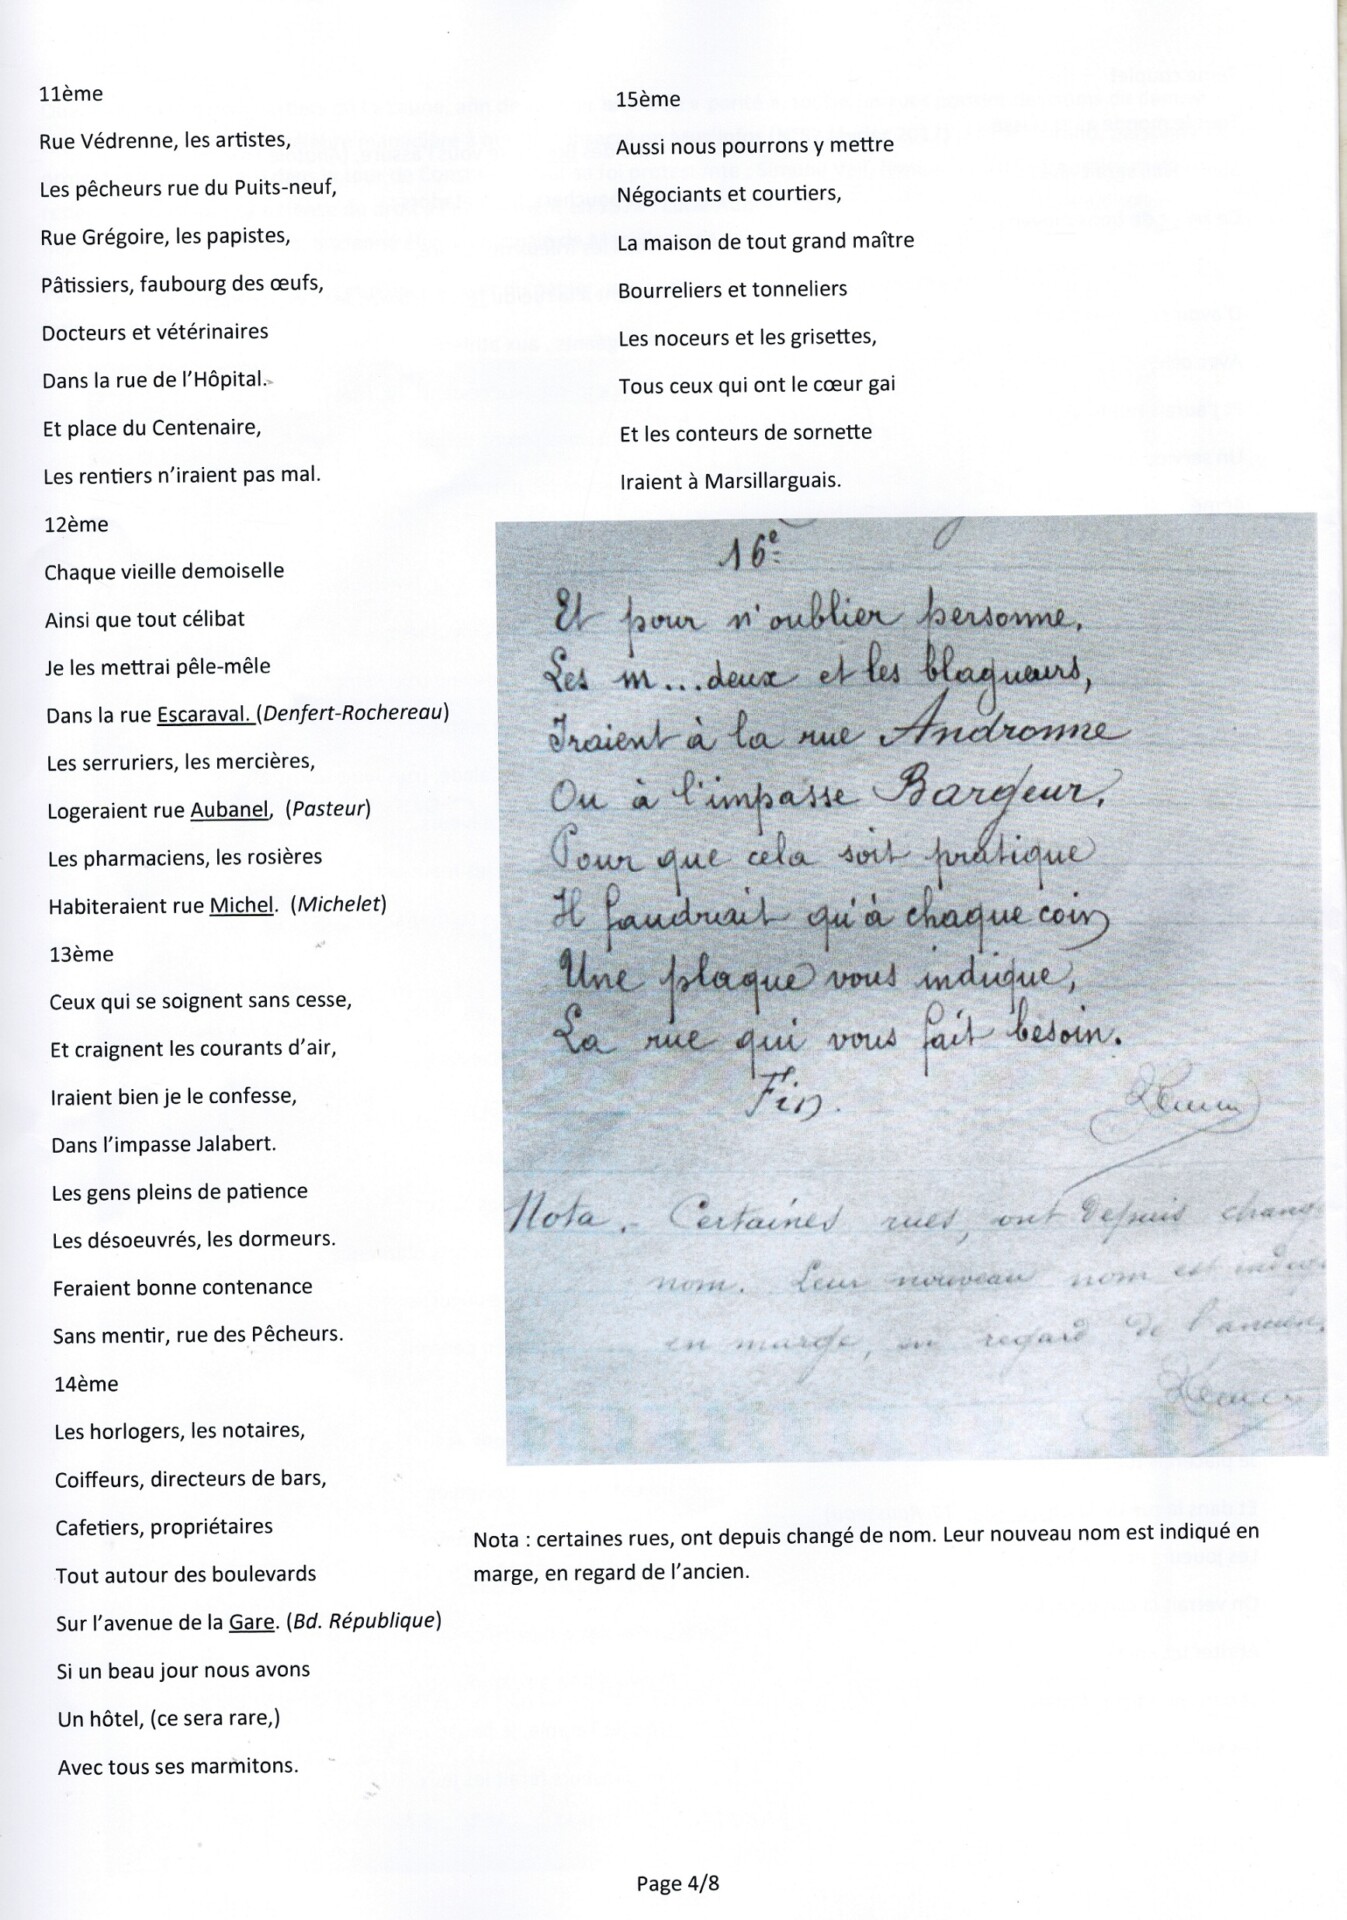 11ème
Rue Védrenne, les artistes,
Les pêcheurs rue du Puits-neuf,
Rue Grégoire, les papistes,
Pâtissiers, faubourg des œufs,
Docteurs et vétérinaires
Dans la rue de l’Hôpital.
Et place du Centenaire,
Les rentiers n’iraient pas mal.
12ème
Chaque vieille demoiselle
Ainsi que tout célibat
Je les mettrai pêle-mêle
Dans la rue Escaraval. (Denfert-Rochereau)
Les serruriers, les mercières,
Logeraient rue Aubanel, (Pasteur)
Les pharmaciens, les rosières
Habiteraient rue Michel. (Michelet)
13ème
Ceux qui se soignent sans cesse,
Et craignent les courants d’air,
Iraient bien je le confesse,
Dans l’impasse Jalabert.
Les gens pleins de patience
Les désoeuvrés, les dormeurs.
Feraient bonne contenance
Sans mentir, rue des Pêcheurs.
14ème
Les horlogers, les notaires,
Coiffeurs, directeurs de bars,
Cafetiers, propriétaires
Tout autour des boulevards
Sur l’avenue de la Gare. (Bd. République)
Si un beau jour nous avons
Un hôtel, (ce sera rare,)
Avec tous ses marmitons.
15ème
Aussi nous pourrons y mettre
Négociants et courtiers,
La maison de tout grand maître
Bourreliers et tonneliers
Les noceurs et les grisettes,
Tous ceux qui ont le cœur gai
Et les conteurs de sornette
Iraient à Marsillarguais.
16e
Et pour n'oublier personne,
Les m...deux et les blagueurs,
Iraient à la rue Andronne
Ou à l'impasse Bargeur.
Pour que cela soit pratique
Il faudrait qu'à chaque coin
Une plaque vous indique,
La rue qui vous fait besoin.
Fin.
Nota.- Certaines rues, ont depuis chang
nom. Leur nouveau nom est indi
en marge, en regard de l'ancien.
Nota : certaines rues, ont depuis changé de nom. Leur nouveau nom est indiqué en
marge, en regard de l’ancien.
Page 4/8